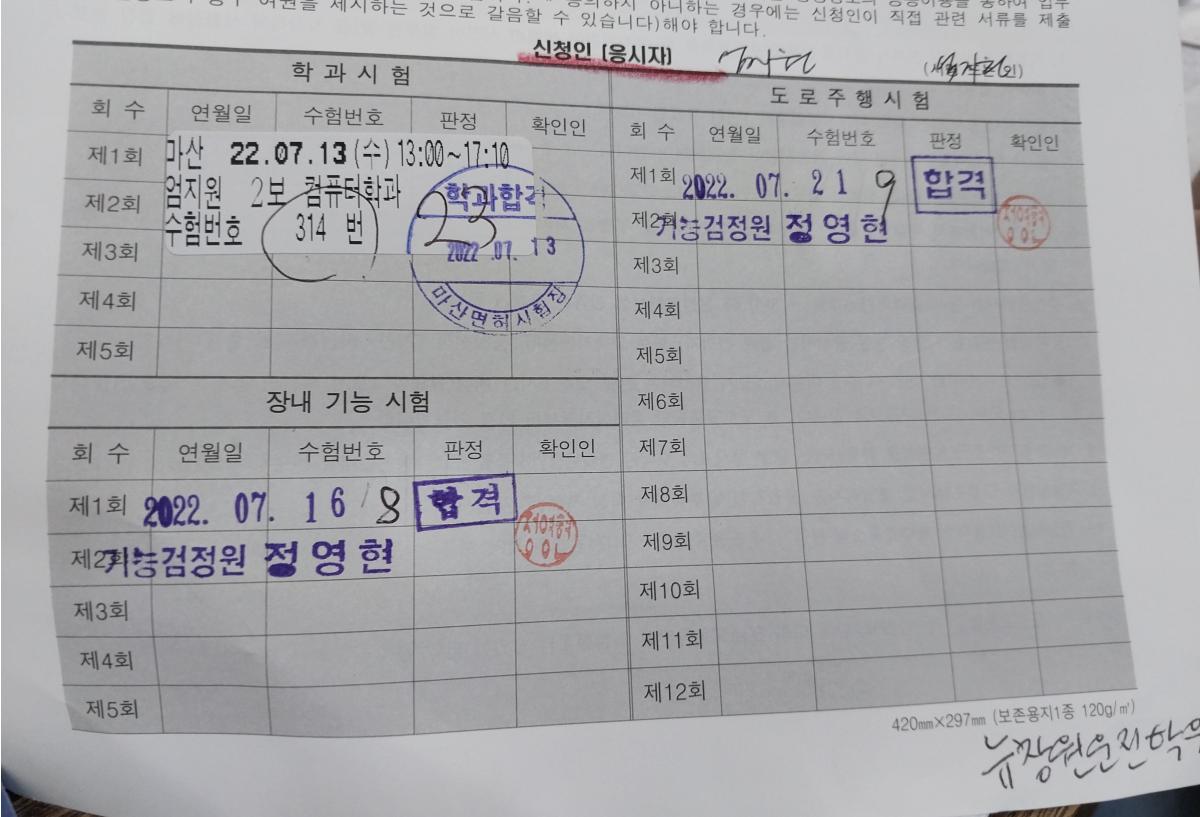 하지 아니하는 경우에는 신청인이 직접 관련 서류를 제출
여권을 제시하는 것으로 갈음할 수 있습니다)해야 합니다.
신청인 [응시자]
학과시험
회 수 연월일 수험번호 판정 확인인
제1회
제2회
제3회
제4회
제5회
마산 22.07.13(수) 13:00~17:10
엄지원 2보 컴퓨터학과
수험번호 314 번
학과합격
23
2022.07.13
마산면허시험장
장내 기능 시험
회 수 연월일 수험번호 판정 확인인
제1회 2022. 07. 16 / 8 합격
제2회 기능검정원 정영현
제3회
제4회
제5회
도로주행시험
회 수 연월일 수험번호 판정 확인인
제1회 2022. 07. 21 9 합격
제2회 기능검정원 정영현
제3회
제4회
제5회
제6회
제7회
제8회
제9회
제10회
제11회
제12회
420㎜×297㎜ (보존용지1종 120g/㎡)